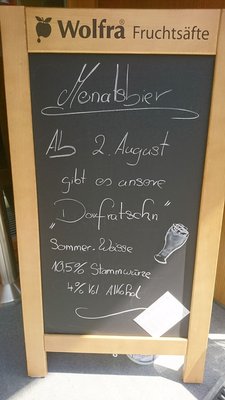 Wolfra® Fruchtsäfte
Monatsbier
Ab 2. August
gibt es unsere
"Dorfratschn"
Sommer-Weisse
10,5% Stammwürze
4% Vol Alkohol